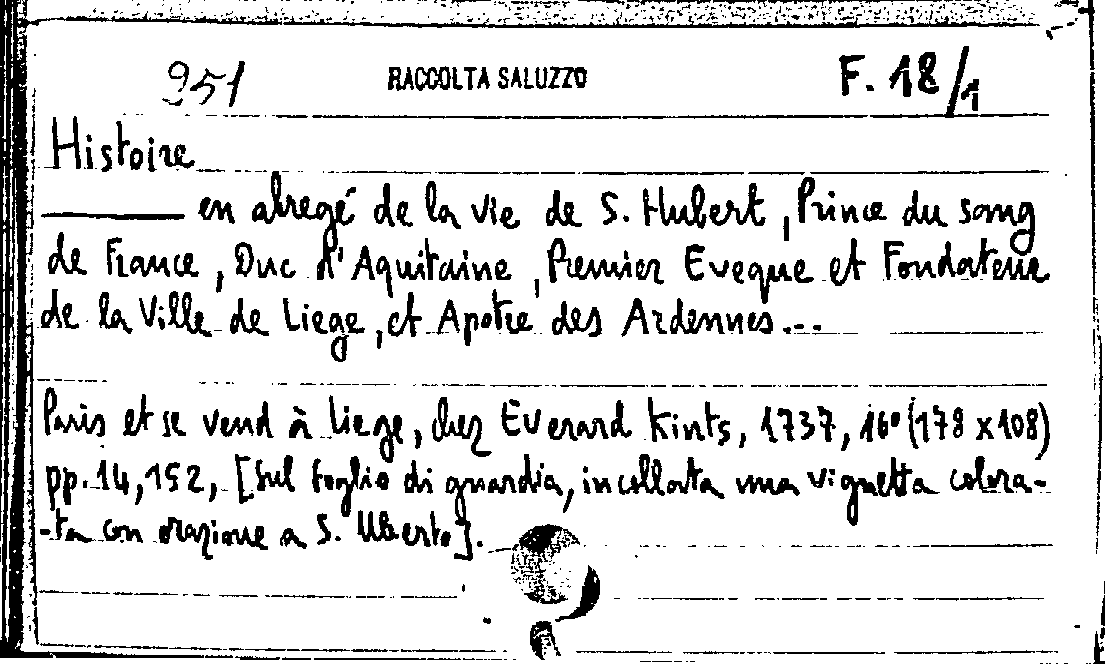 251 RACCOLTA SALUZZO F. 18/1
Histoire
——— en abregé de la vie de S. Hubert, Prince du sang
de France, Duc d'Aquitaine, Premier Eveque et Fondateur
de la Ville de Liege, et Apotre des Ardennes...
Paris et se vend à Liege, chez Everard Kints, 1737, 16° (178 x 108)
pp. 14, 152, [Sul foglio di guardia, incollata una vignetta colora-
-ta con orazione a S. Uberto].